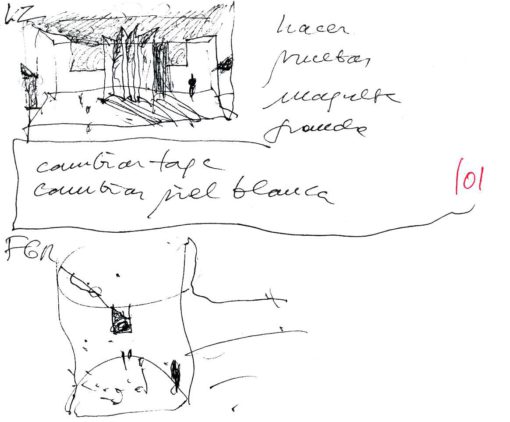 LZ
hacer
pruebas
maqueta
grande
cambiar tape
cambiar piel blanca
101
FGR